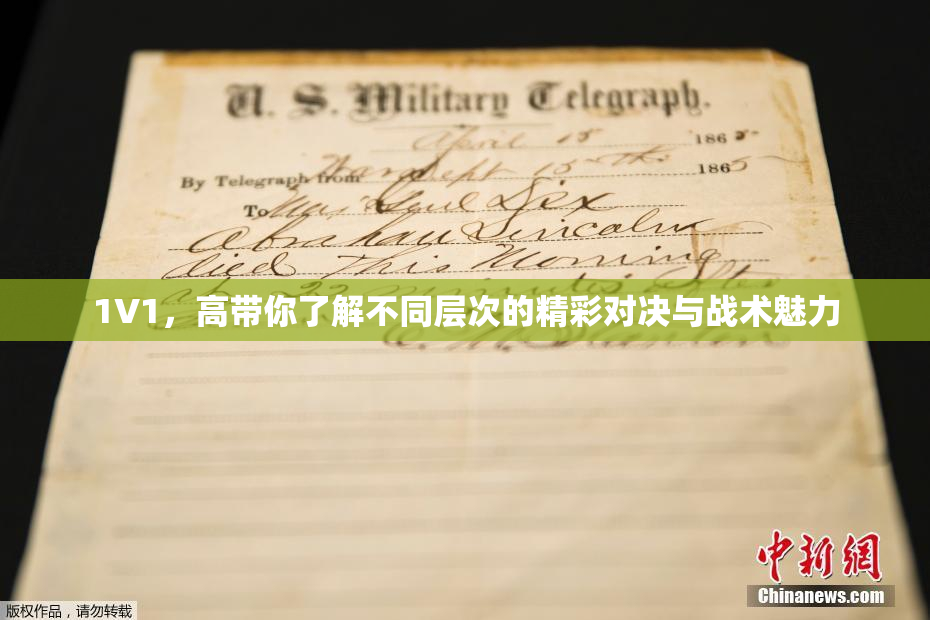 U. S. Military Telegraph.
April 15 1865
By Telegraph from War Dept 15th 1865
To Maj Genl Dix
Abraham Lincoln
died This Morning
at 22 minutes after
1V1，高带你了解不同层次的精彩对决与战术魅力
E. M. Stanton
中新网
Chinanews.com
版权作品，请勿转载